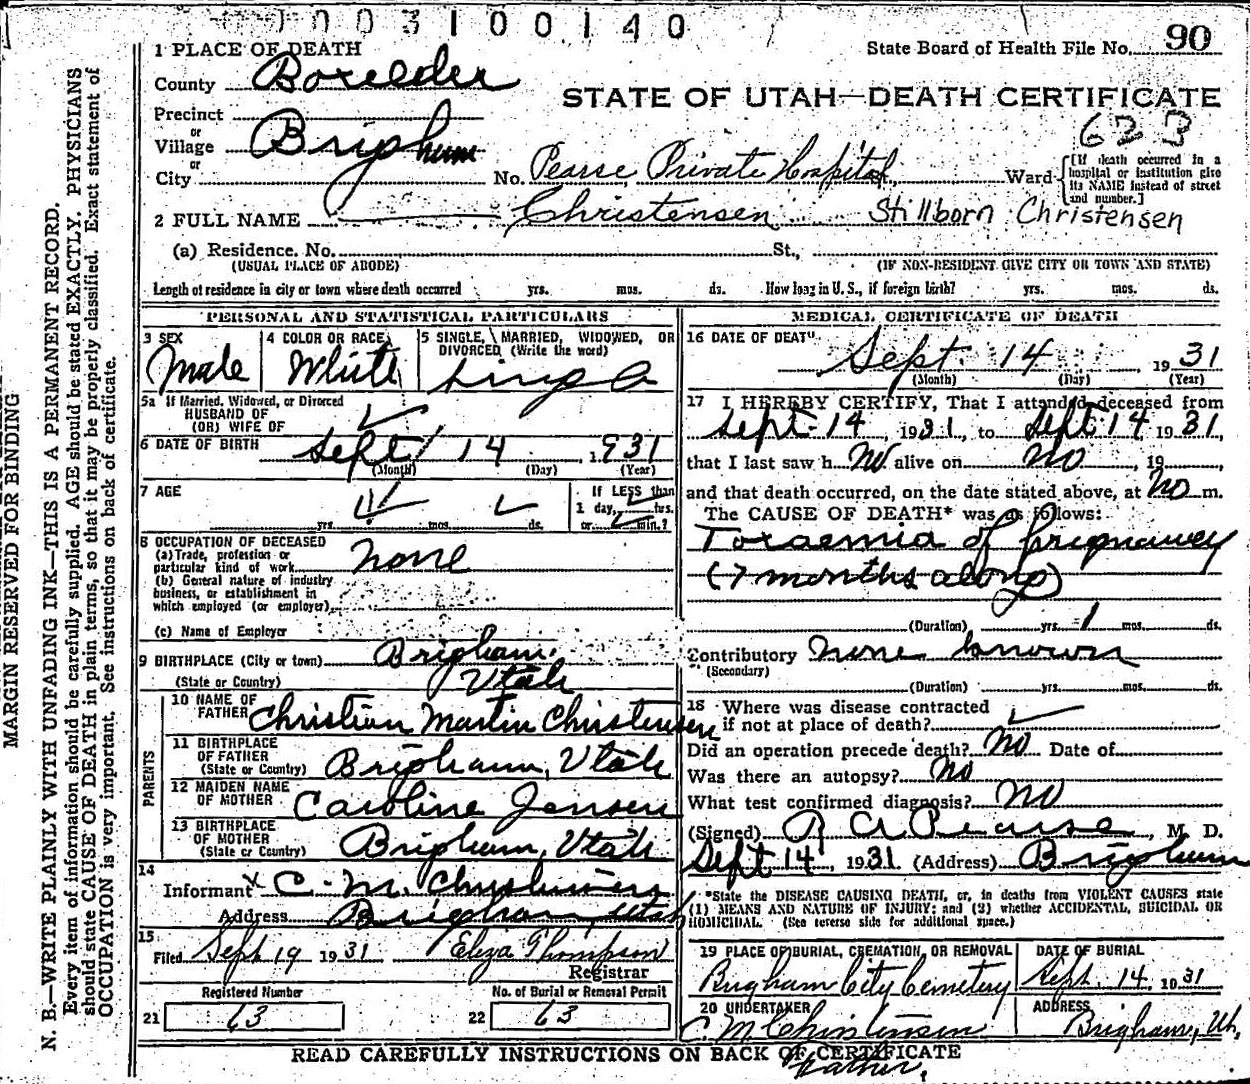 003100140
State Board of Health File No. 90
1 PLACE OF DEATH
County Boxelder
STATE OF UTAH—DEATH CERTIFICATE
623
Precinct
or
Village Brigham
or
City
No. Pearse Private Hospital, Ward
[If death occurred in a
hospital or institution give
its NAME instead of street
and number.]
2 FULL NAME Christensen Stillborn Christensen
(a) Residence. No. St.,
(USUAL PLACE OF ABODE) (IF NON-RESIDENT GIVE CITY OR TOWN AND STATE)
Length of residence in city or town where death occurred yrs. mos. ds. How long in U. S., if foreign birth? yrs. mos. ds.
PERSONAL AND STATISTICAL PARTICULARS
3 SEX 4 COLOR OR RACE 5 SINGLE, MARRIED, WIDOWED, OR
DIVORCED (Write the word)
Male White Single
5a If Married, Widowed, or Divorced
HUSBAND OF
(OR) WIFE OF
6 DATE OF BIRTH Sept 14 1931
(Month) (Day) (Year)
7 AGE If LESS than
1 day, hrs.
yrs. mos. ds. or min.?
8 OCCUPATION OF DECEASED
(a) Trade, profession or
particular kind of work none
(b) General nature of industry
business, or establishment in
which employed (or employer)
(c) Name of Employer
9 BIRTHPLACE (City or town) Brigham.
(State or Country) Utah
PARENTS
10 NAME OF
FATHER Christian Martin Christensen
11 BIRTHPLACE
OF FATHER
(State or Country) Brigham, Utah
12 MAIDEN NAME
OF MOTHER Caroline Jensen
13 BIRTHPLACE
OF MOTHER
(State or Country) Brigham, Utah
14
Informant x C. M. Christensen
Address Brigham, Utah
15
Filed Sept 19 1931 Eliza Thompson
Registrar
Registered Number No. of Burial or Removal Permit
21 63 22 63
MEDICAL CERTIFICATE OF DEATH
16 DATE OF DEATH
Sept 14 1931
(Month) (Day) (Year)
17 I HEREBY CERTIFY, That I attended deceased from
Sept. 14 1931, to Sept. 14 1931,
that I last saw h no alive on no, 19
and that death occurred, on the date stated above, at no m.
The CAUSE OF DEATH* was as follows:
Toxaemia of pregnancy
(7 months along)
(Duration) yrs. 1 mos. ds.
Contributory none known
(Secondary)
(Duration) yrs. mos. ds.
18 Where was disease contracted
if not at place of death?
Did an operation precede death? No Date of
Was there an autopsy? No
What test confirmed diagnosis? No
(Signed) R A Pearse, M. D.
Sept 14, 1931 (Address) Brigham
*State the DISEASE CAUSING DEATH, or, in deaths from VIOLENT CAUSES state
(1) MEANS AND NATURE OF INJURY; and (2) whether ACCIDENTAL, SUICIDAL OR
HOMICIDAL. (See reverse side for additional space.)
19 PLACE OF BURIAL, CREMATION, OR REMOVAL DATE OF BURIAL
Brigham City Cemetery Sept. 14, 1931
20 UNDERTAKER ADDRESS
C. M. Christensen Brigham, Ut,
Father.
READ CAREFULLY INSTRUCTIONS ON BACK OF CERTIFICATE
MARGIN RESERVED FOR BINDING
N. B.—WRITE PLAINLY WITH UNFADING INK—THIS IS A PERMANENT RECORD.
Every item of information should be carefully supplied. AGE should be stated EXACTLY. PHYSICIANS
should state CAUSE OF DEATH in plain terms, so that it may be properly classified. Exact statement of
OCCUPATION is very important. See instructions on back of certificate.